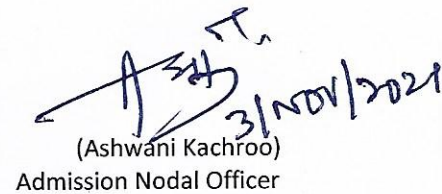 3/NOV/2021
(Ashwani Kachroo)
Admission Nodal Officer